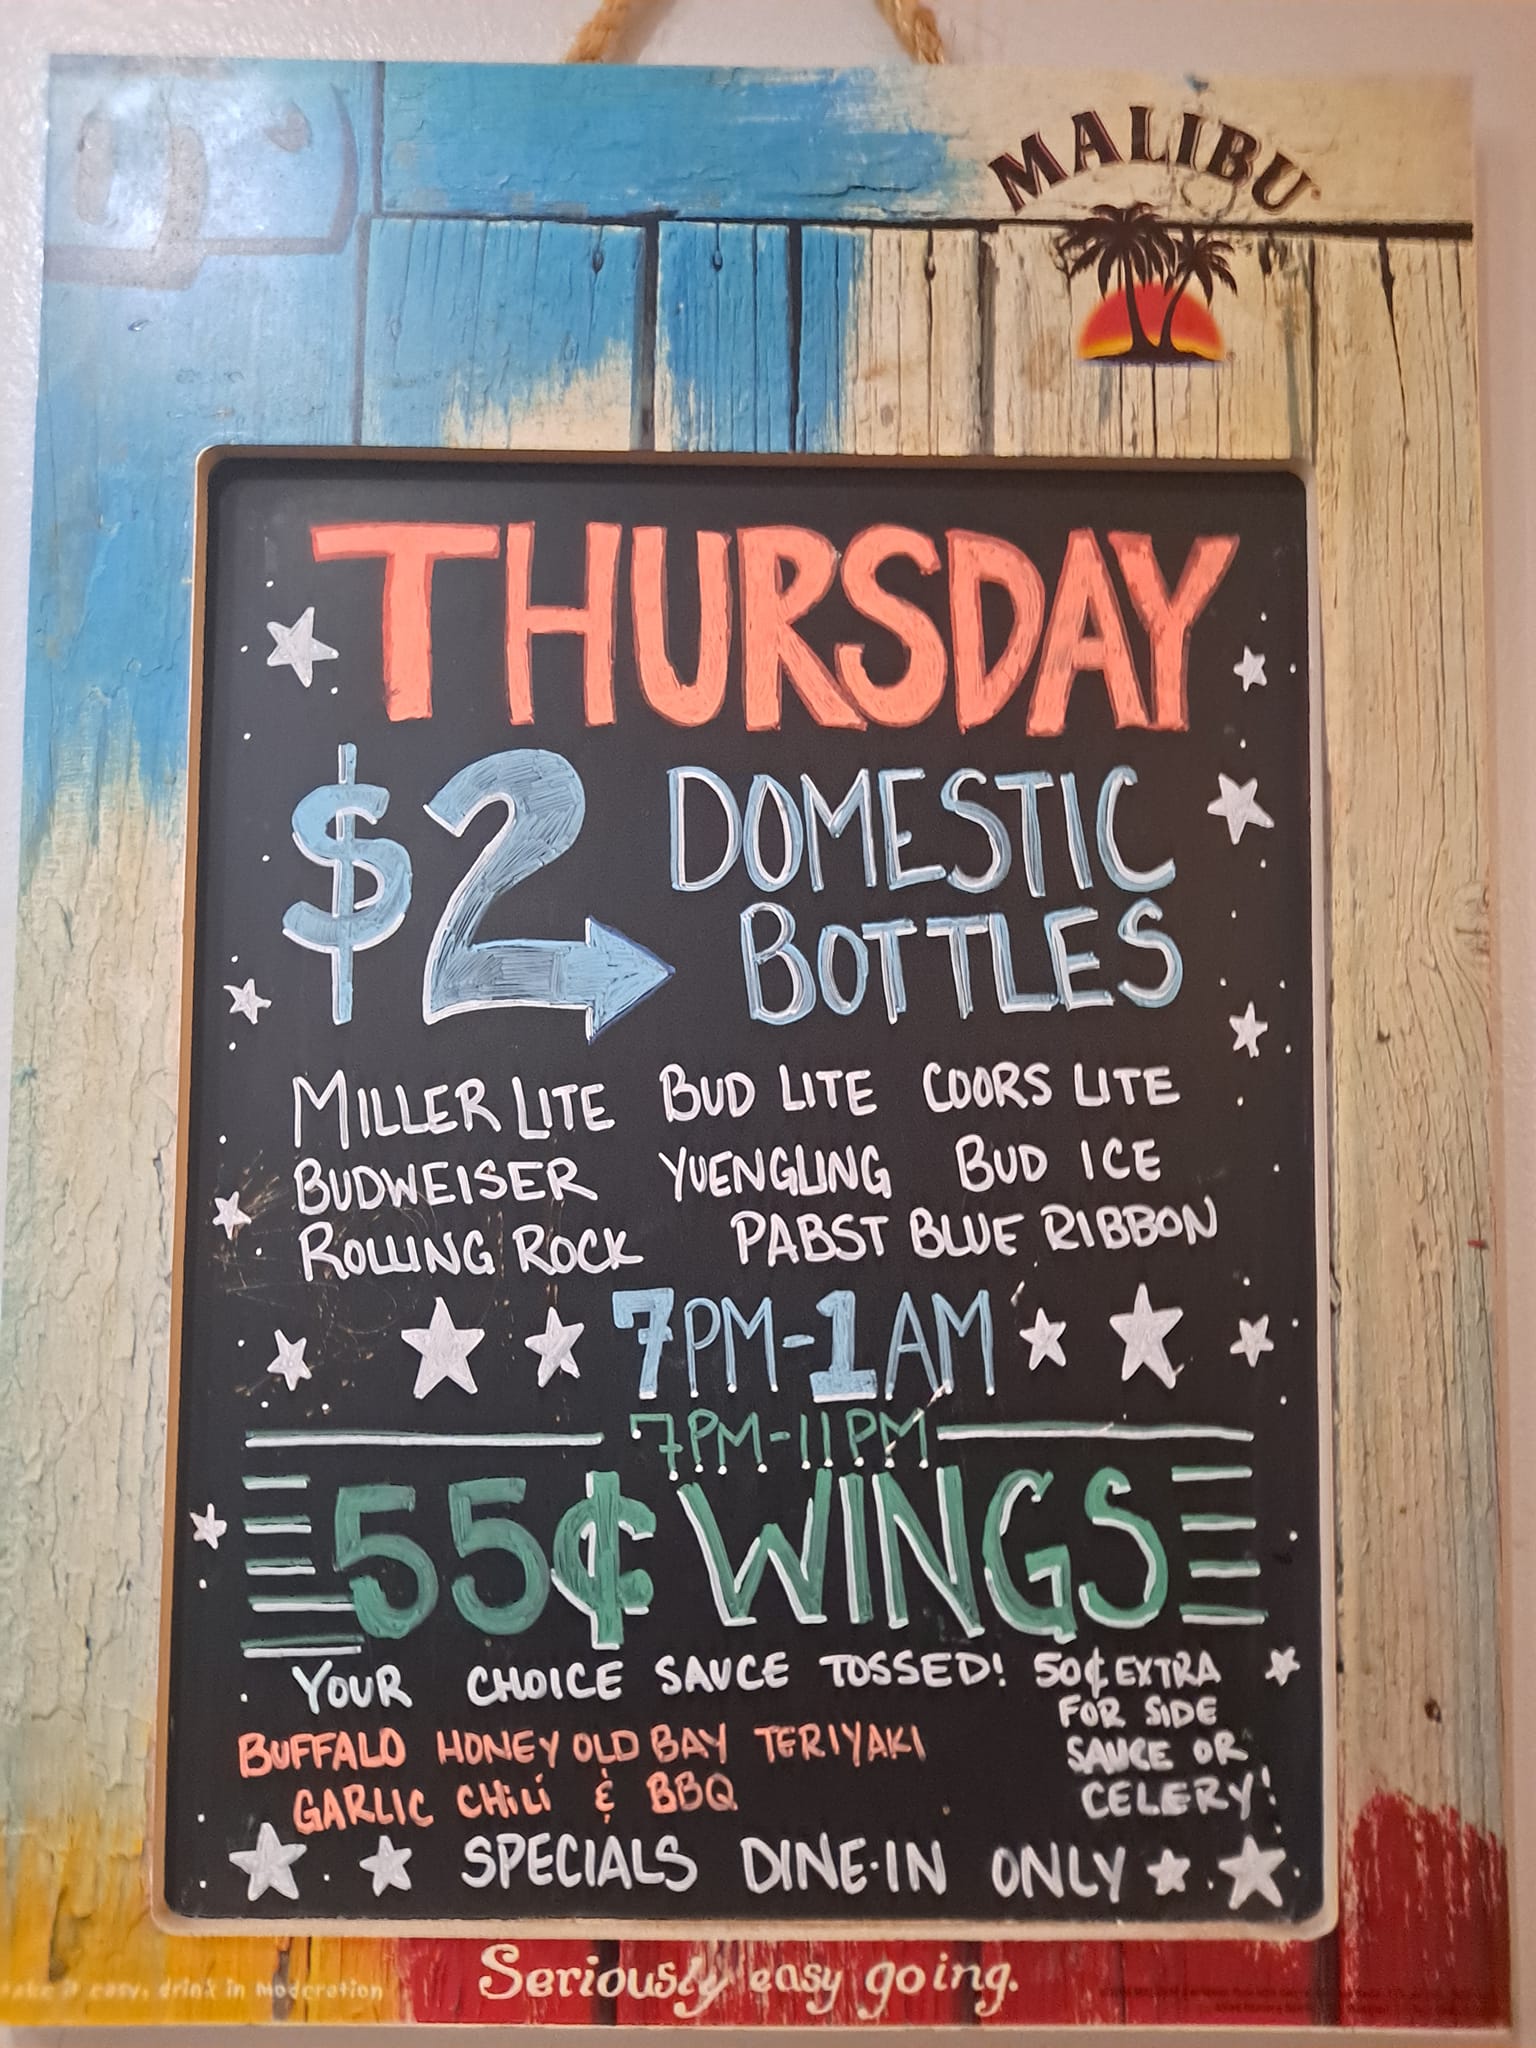 MALIBU
THURSDAY
$2 DOMESTIC
BOTTLES
MILLER LITE BUD LITE COORS LITE
BUDWEISER YUENGLING BUD ICE
ROLLING ROCK PABST BLUE RIBBON
7PM-1AM
7PM-11PM
55¢ WINGS
YOUR CHOICE SAUCE TOSSED!
BUFFALO HONEY OLD BAY TERIYAKI
GARLIC CHiLi & BBQ
50¢ EXTRA
FOR SIDE
SAUCE OR
CELERY!
SPECIALS DINE-IN ONLY
Seriously easy going.
easy, drink in moderation